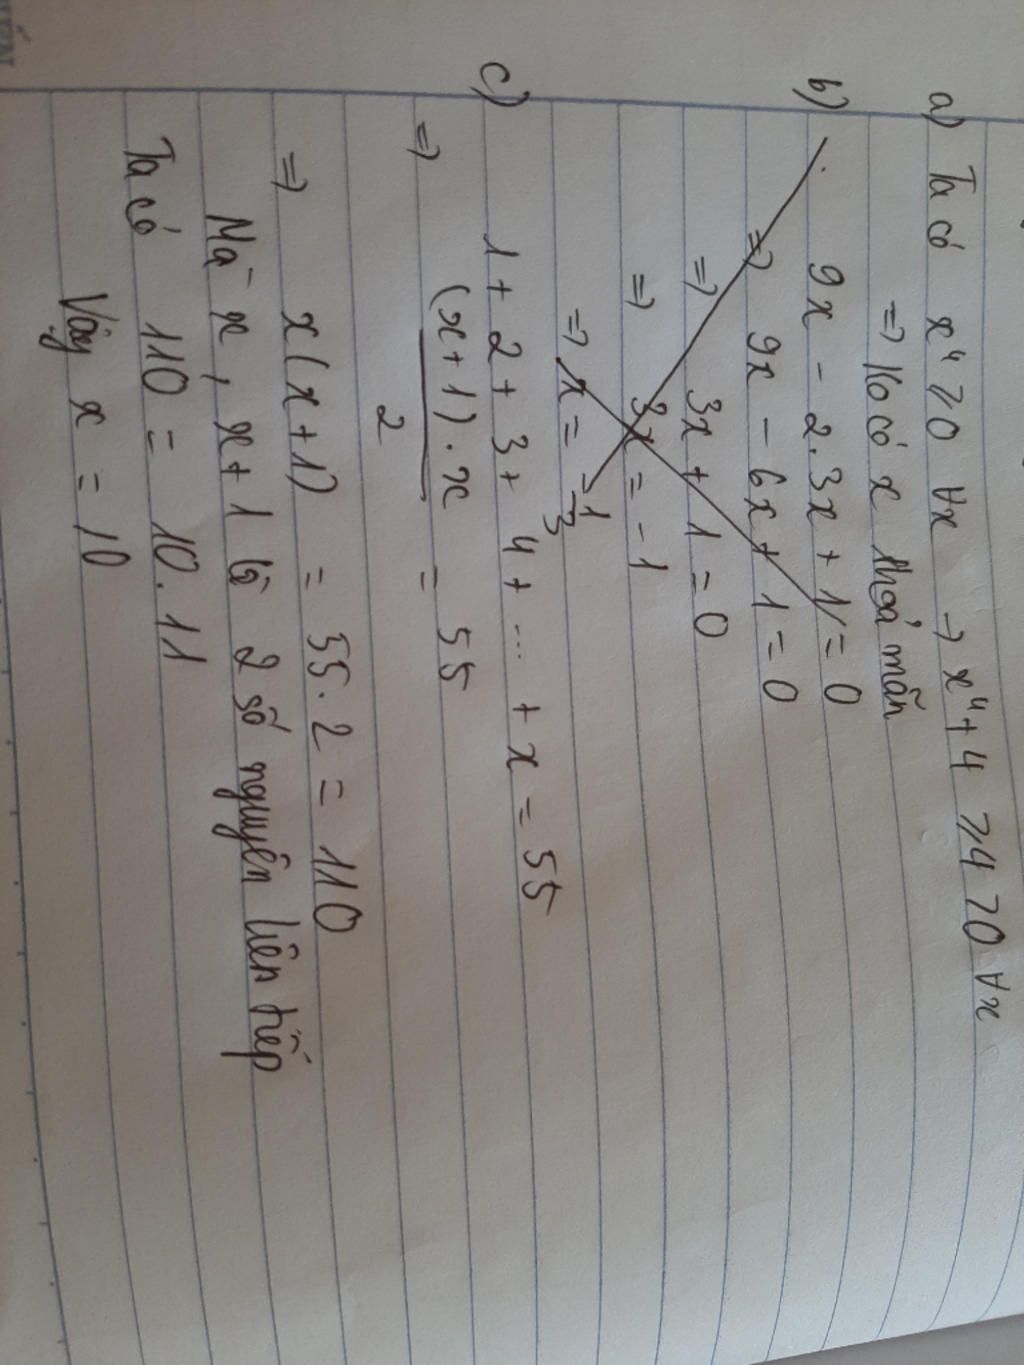 a) Ta có x⁴ ≥ 0 ∀x → x⁴ + 4 ≥ 4 > 0 ∀x
=> Ko có x thoả mãn
b) 9x - 2.3x + 1 = 0
=> 9x - 6x + 1 = 0
=> 3x + 1 = 0
=> 3x = -1
=> x = -1/3
c) 1 + 2 + 3 + 4 + ... + x = 55
=> (x+1).x / 2 = 55
=> x(x+1) = 55.2 = 110
Mà x, x+1 là 2 số nguyên liên tiếp
Ta có 110 = 10.11
Vậy x = 10